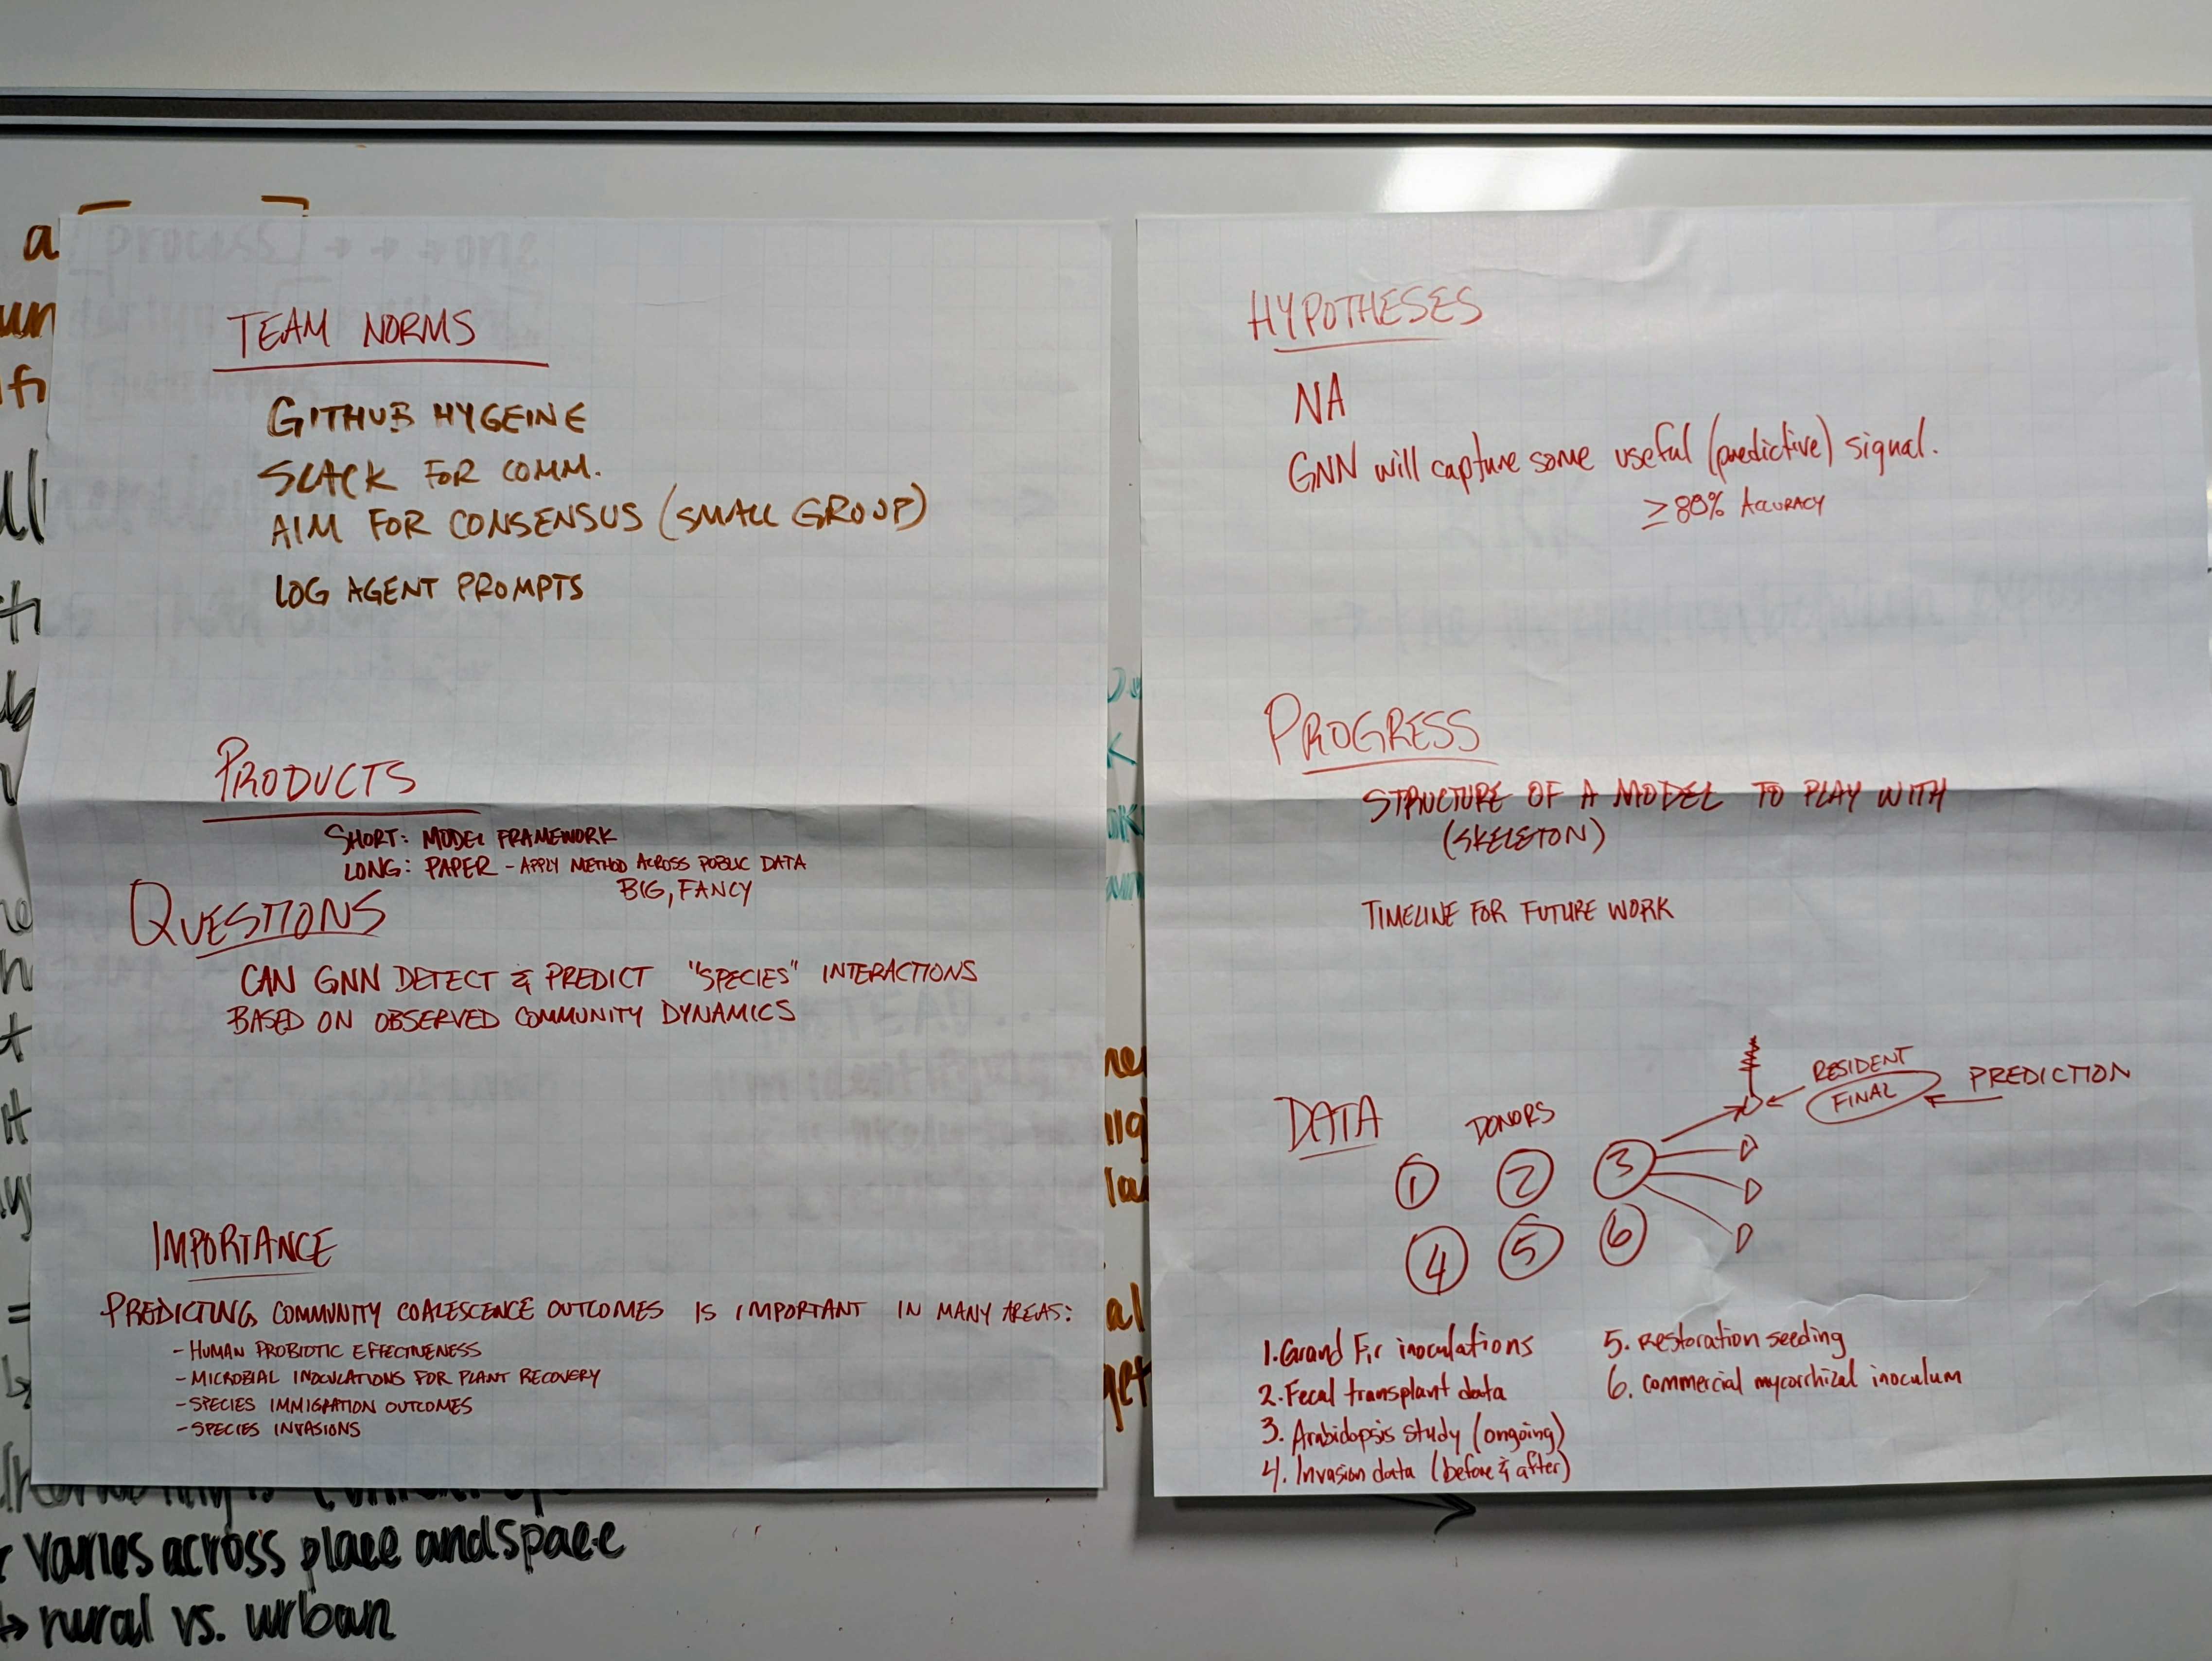 TEAM NORMS
GITHUB HYGEINE
SLACK FOR COMM.
AIM FOR CONSENSUS (SMALL GROUP)
LOG AGENT PROMPTS
PRODUCTS
SHORT: MODEL FRAMEWORK
LONG: PAPER - APPLY METHOD ACROSS PUBLIC DATA
BIG, FANCY
QUESTIONS
CAN GNN DETECT & PREDICT "SPECIES" INTERACTIONS
BASED ON OBSERVED COMMUNITY DYNAMICS
IMPORTANCE
PREDICTING COMMUNITY COALESCENCE OUTCOMES IS IMPORTANT IN MANY AREAS:
- HUMAN PROBIOTIC EFFECTIVENESS
- MICROBIAL INOCULATIONS FOR PLANT RECOVERY
- SPECIES IMMIGRATION OUTCOMES
- SPECIES INVASIONS
HYPOTHESES
NA
GNN will capture some useful (predictive) signal.
≥80% ACCURACY
PROGRESS
STRUCTURE OF A MODEL TO PLAY WITH
(SKELETON)
TIMELINE FOR FUTURE WORK
DATA
DONORS
RESIDENT
FINAL
PREDICTION
1 2 3
4 5 6
1. Grand Fir inoculations
2. Fecal transplant data
3. Arabidopsis study (ongoing)
4. Invasion data (before & after)
5. Restoration seeding
6. Commercial mycorrhizal inoculum
varies across place and space
rural vs. urban